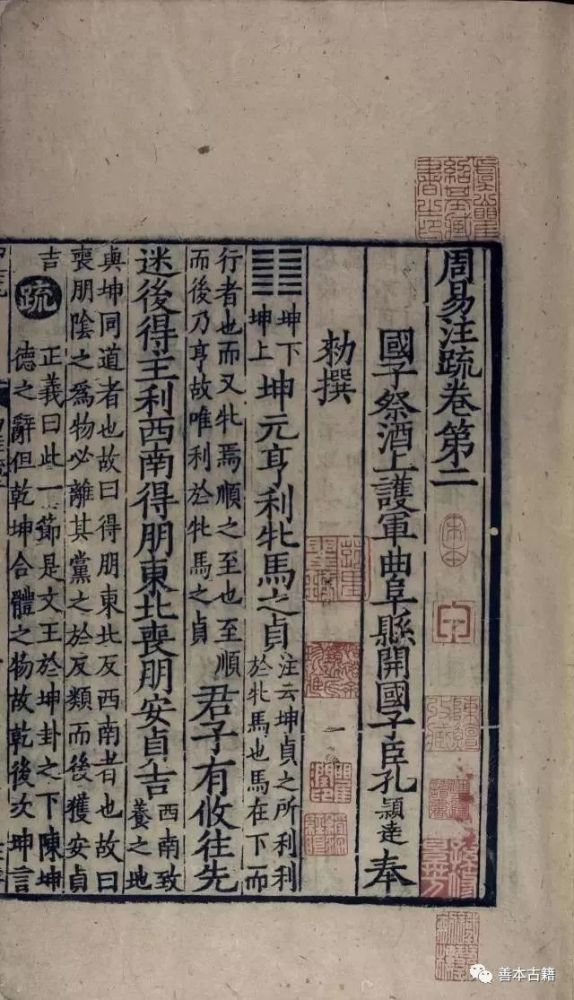 周易注疏卷第二
國子祭酒上護軍曲阜縣開國子臣孔穎達奉
勑撰
坤下
坤上
坤元亨利牝馬之貞
注云坤貞之所利利
於牝馬也馬在下而
行者也而又牝焉順之至也至順
而後乃亨故唯利於牝馬之貞
君子有攸往先
迷後得主利西南得朋東北喪朋安貞吉
西南致
養之地
與坤同道者也故曰得朋東北反西南者也故曰
喪朋陰之爲物必離其黨之於反類而後獲安貞
吉
疏
正義曰此一節是文王於坤卦之下陳坤
德之辭但乾坤合體之物故乾後次坤言
宋本
善本古籍